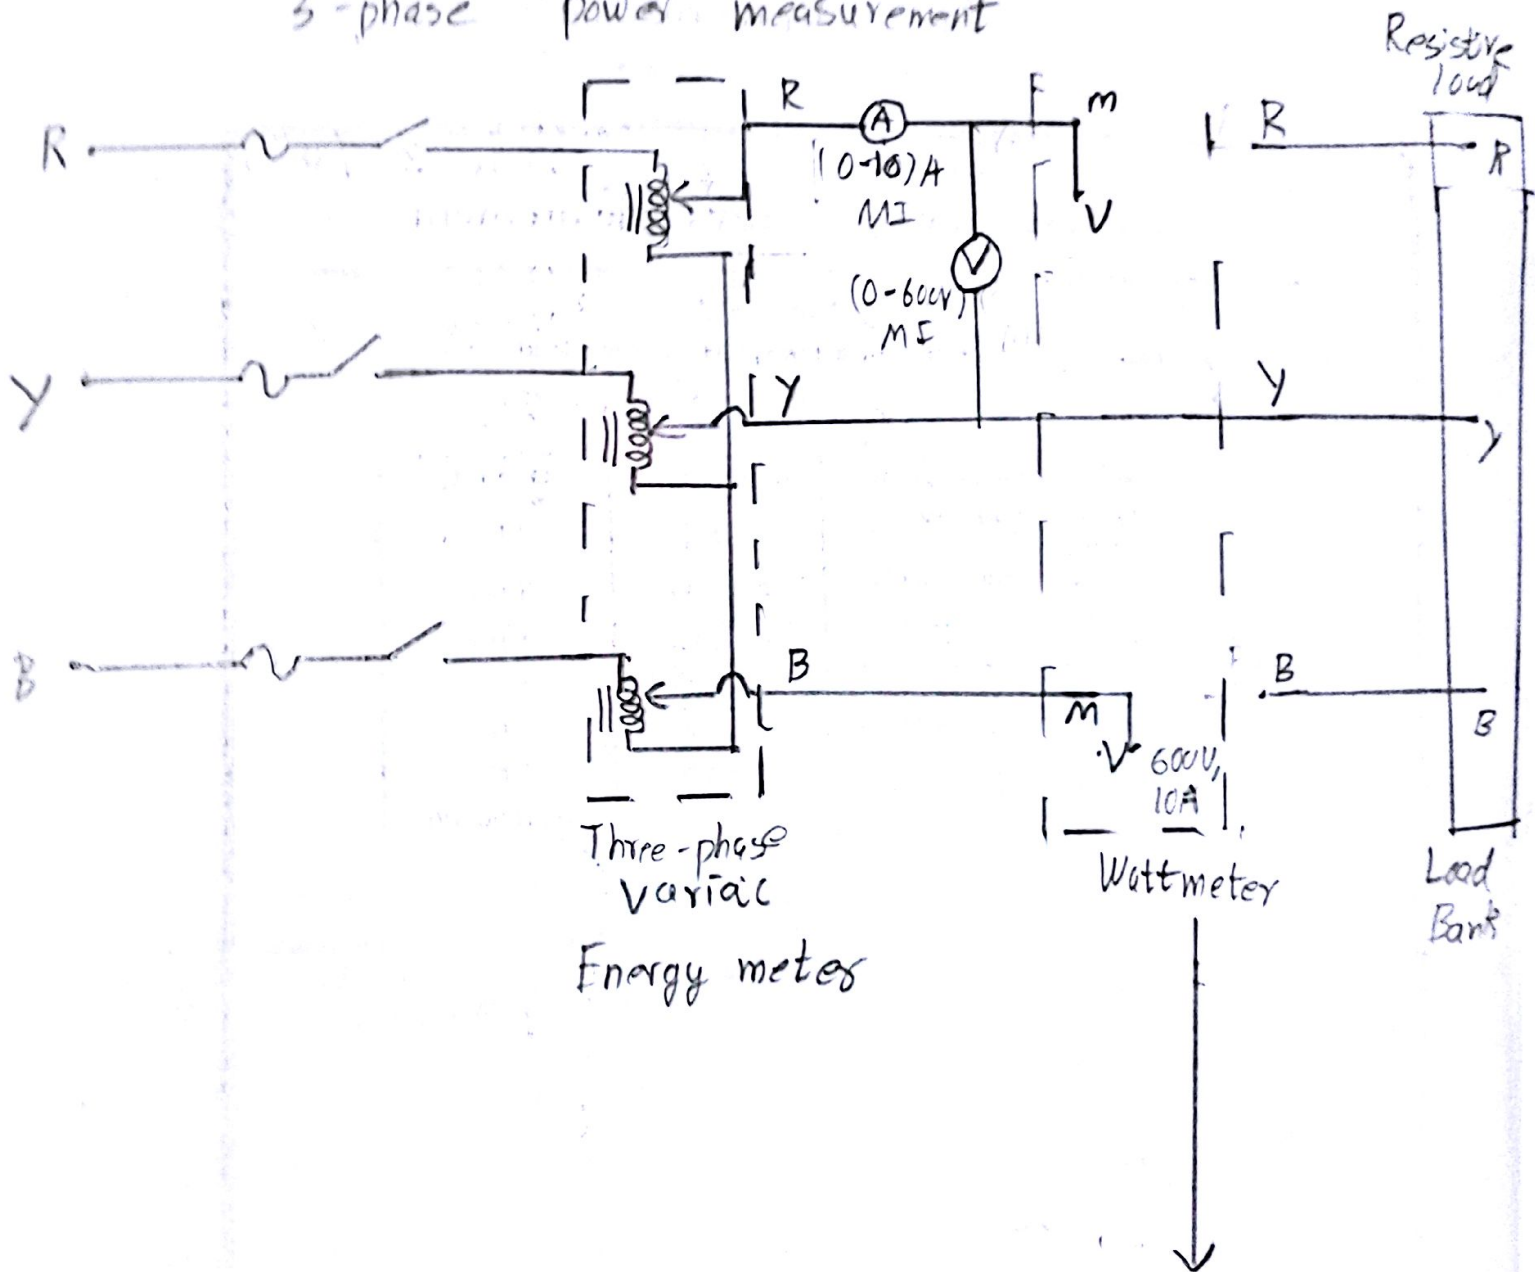 3-phase power measurement
Resistive
load
R
R
A
m
R
R
(0-10)A
MI
V
V
(0-600V)
MI
Y
Y
Y
y
B
B
M
B
B
V
600V,
10A
Three-phase
Variac
Wattmeter
Load
Bank
Energy meter